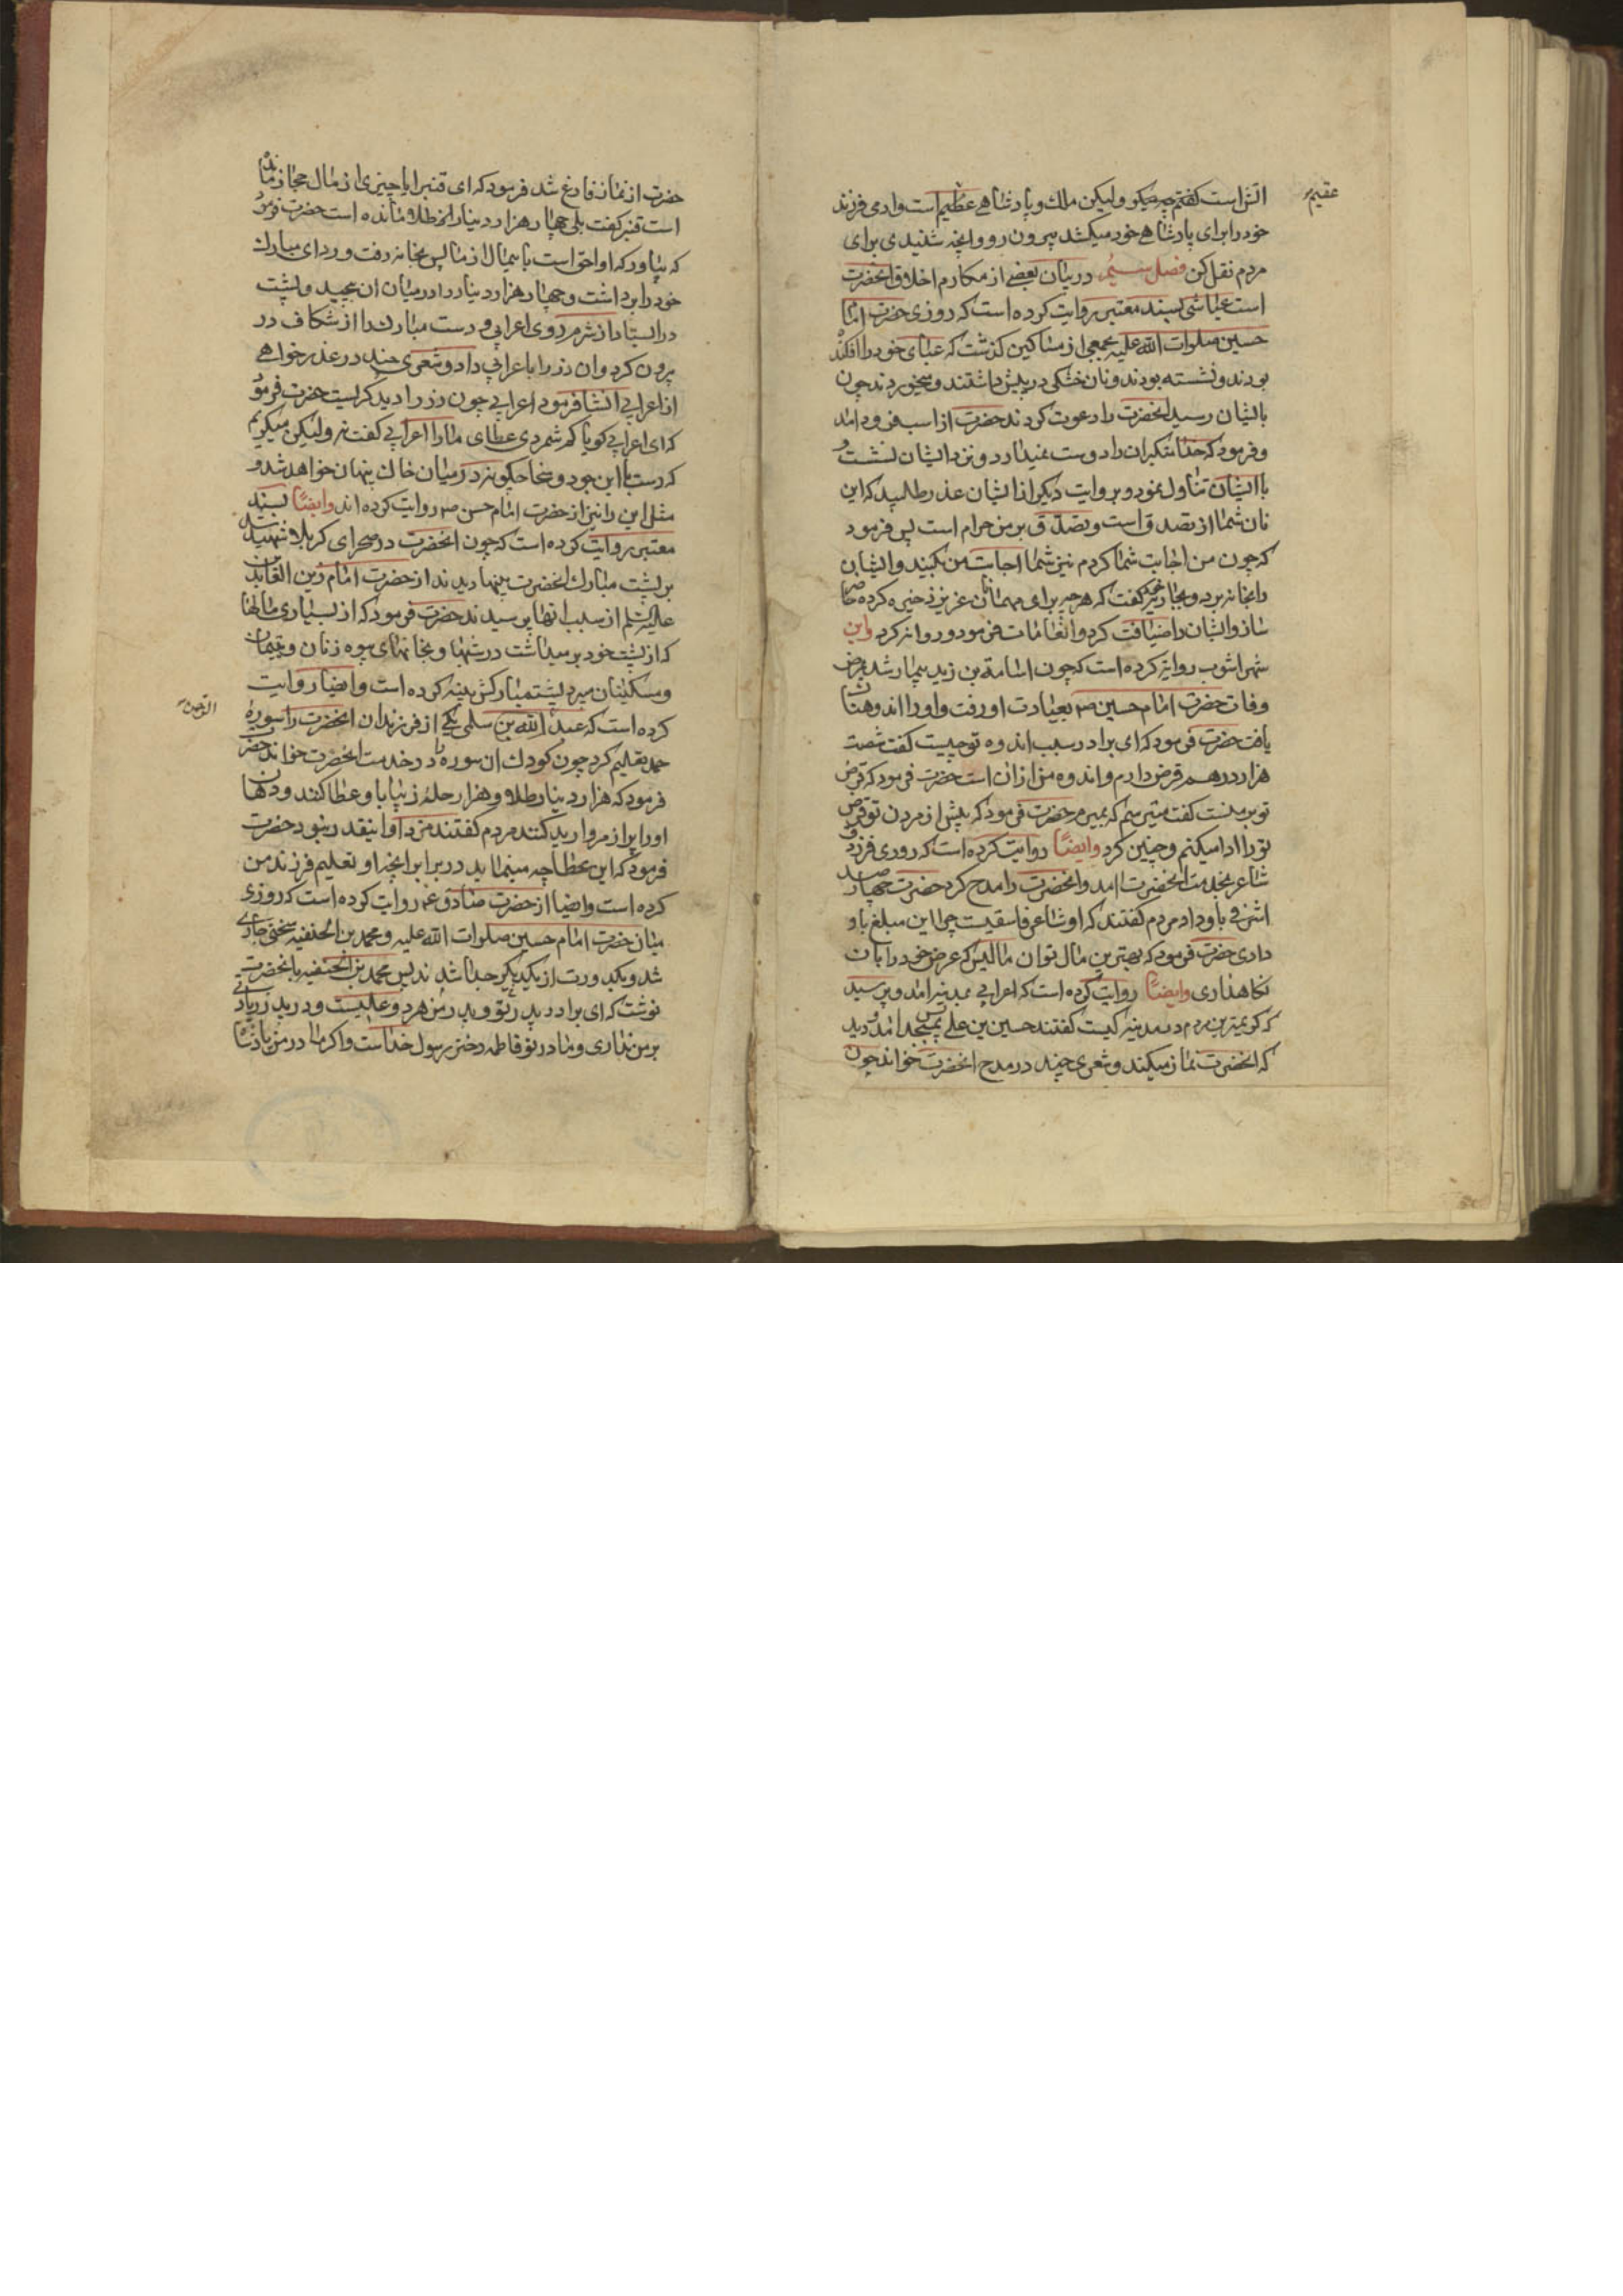 اتش است کفتم چه میکو ولیکن ملك و پادشاهے عظیم است وادمی فرزند
عقیم
خود را برای پادشاهے خود میکشد بیرون رو وانچه شنیدی برای
مردم نقل کن فصل سیم در بیان بعضے از مکارم اخلاق انحضرت
است عیاشی بسند معتبر روایت کرده است که روزی حضرت امام
حسین صلوات الله علیه بجمعی از مساکین کذشت که عبای خود را افکنده
بودند و نشسته بودند و نان خشکی در پیش داشتند و میخوردند چون
بایشان رسید انحضرت را دعوت کردند حضرت از اسب فرود امد
و فرمود که خدا متکبران را دوست نمیدارد و نزد ایشان نشست و
با ایشان تناول نمود و بروایت دیکر از ایشان عذر طلبید که این
نان شما از تصدق است و تصدق بر من حرام است پس فرمود
که چون من اجابت شما کردم نیز شما اجابت من بکنید و ایشان
را بخانه برد و بجاریه کفت که هر چه برای مهمانان عزیز ذخیره کرده حاضر
ساز و ایشان را ضیافت کرد و انعامات فرمود و روانه کرد و ابن
شهراشوب روایة کرده است که چون اسامة بن زید بیمار شد بمرض
وفات حضرت امام حسین ص بعیادت او رفت و او را اندوهناك
یافت حضرت فرمود که ای برادر سبب اندوه تو چیست کفت شصت
هزار درهم قرض دارم و اندوه من از ان است حضرت فرمود که قرض
تو بر منست کفت میترسم که بمیرم حضرت فرمود که پیش از مردن تو قرض
تو را ادا میکنم و چنین کرد وایضًا روایت کرده است که روزی فرزدق
شاعر بخدمت انحضرت امد و انحضرت را مدح کرد حضرت چهار صد
اشرفی باو داد مردم کفتند که او شاعر فاسقیست چرا این مبلغ باو
دادی حضرت فرمود که بهترین مال تو ان مالیس که عرض خود را بان
نکاهداری وایضًا روایت کرده است که اعرابے بمدینه امد و پرسید
که کریمترین مردم در مدینه کیست کفتند حسین بن علے پس بمسجد امد و دید
که انحضرت نماز میکند و شعری چند در مدح انحضرت خواند چون
حضرت از نماز فارغ شد فرمود که ای قنبر ایا چیزی از مال حجاز مانده
است قنبر کفت بلی چهار هزار دینار از طلا مانده است حضرت فرمود
که بیاور که او احق است باین مال از ما پس بخانه رفت و ردای مبارك
خود را برداشت و چهار هزار دینار را در میان ان پیچید و پشت
در ایستاد از شرم روی اعرابی و دست مبارك را از شکاف در
بیرون کرد و ان زر را باعرابی داد و شعری چند در عذر خواهے
از اعرابے انشا فرمود اعرابے چون زر را دید کریست حضرت فرمود
که ای اعرابے کویا کم شمردی عطای ما را اعرابے کفت نه ولیکن میکریم
که دست باین جود و سخا چکونه در میان خاك پنهان خواهد شد و
مثل این را نیز از حضرت امام حسن ص روایت کرده اند وایضًا بسند
معتبر روایت کرده است که چون انحضرت در صحرای کربلا شهید شد
بر پشت مبارك انحضرت پینها دیدند از حضرت امام زین العابدین
علیه السلم از سبب انها پرسیدند حضرت فرمود که از بسیاری مالها
که از پشت خود بر میداشت در شبها و بخانهای بیوه زنان و یتیمان
و مسکینان میبرد پشت مبارکش پینه کرده است و ایضا روایت
کرده است که عبد الله بن سلمی یکے از فرزندان انحضرت را سوره
الرحمن
حمد تعلیم کرد چون کودك ان سوره را در خدمت انحضرت خواند حضرت
فرمود که هزار دینار طلا و هزار حله زیبا باو عطا کنند و دهان
او را پر از مروارید کنند مردم کفتند مزد او اینقدر نبود حضرت
فرمود که این عطا چه مینماید در برابر انچه او تعلیم فرزند من
کرده است و ایضا از حضرت صادق ع روایت کرده است که روزی
میان حضرت امام حسین صلوات الله علیه و محمد بن الحنفیه سخنی جاری
شد و بکدورت از یکدیکر جدا شدند پس محمد بن الحنفیه بانحضرت
نوشت که ای برادر پدر تو و پدر من هر دو علیست و در پدر زیادتی
بر من نداری و مادر تو فاطمه دختر رسول خداست و اکر مادر من پادشاه